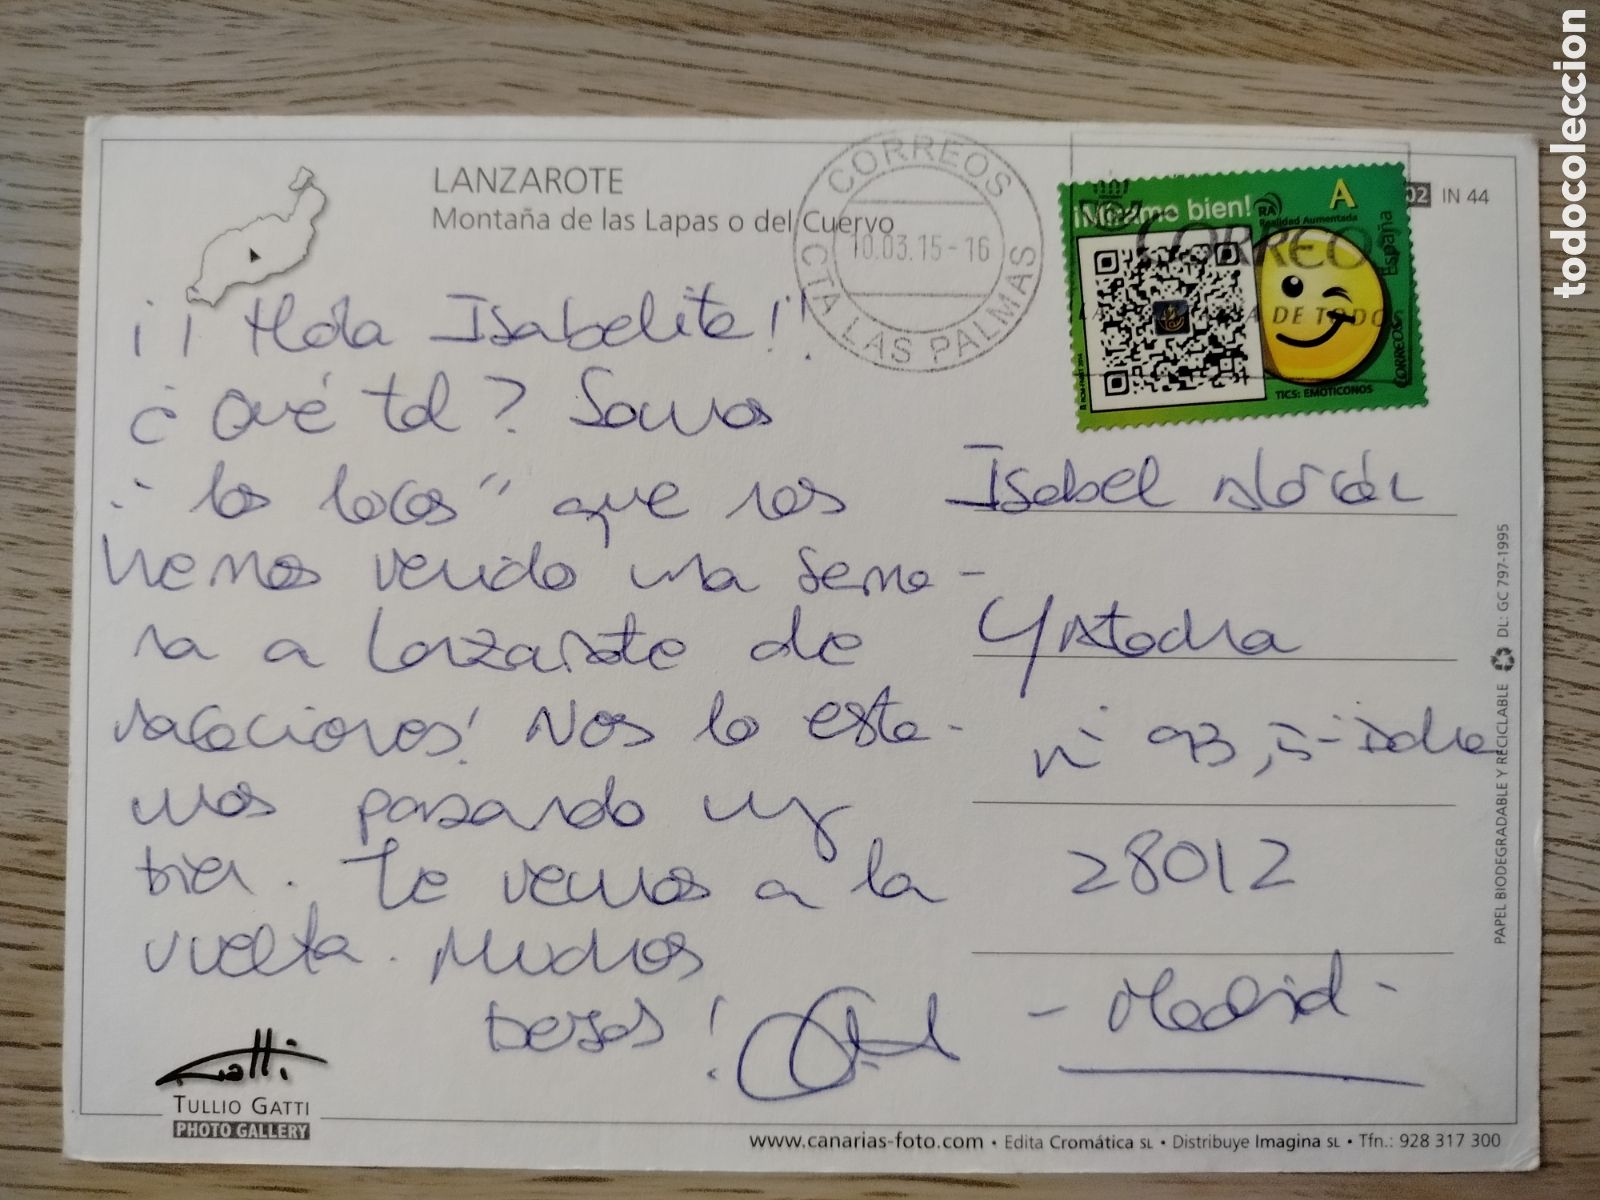 todocoleccion
LANZAROTE
Montaña de las Lapas o del Cuervo
CORREOS
10.03.15-16
CTA LAS PALMAS
¡Mírame bien!
RA
Realidad Aumentada
A
España
CORREOS
CORREOS
TICS: EMOTICONOS
02 IN 44
¡¡ Hola Isabelita!!
¿Qué tal? Somos
"los locos" que nos
hemos venido una sema-
na a Lanzarote de
vacaciones! Nos lo esta-
mos pasando muy
bien. Te vemos a la
vuelta. Muchos
besos!
Isabel
nº 93, 5º
28012
- Madrid -
PAPEL BIODEGRADABLE Y RECICLABLE DL: GC 797-1995
Gatti
TULLIO GATTI
PHOTO GALLERY
www.canarias-foto.com • Edita Cromática SL • Distribuye Imagina SL • Tfn.: 928 317 300